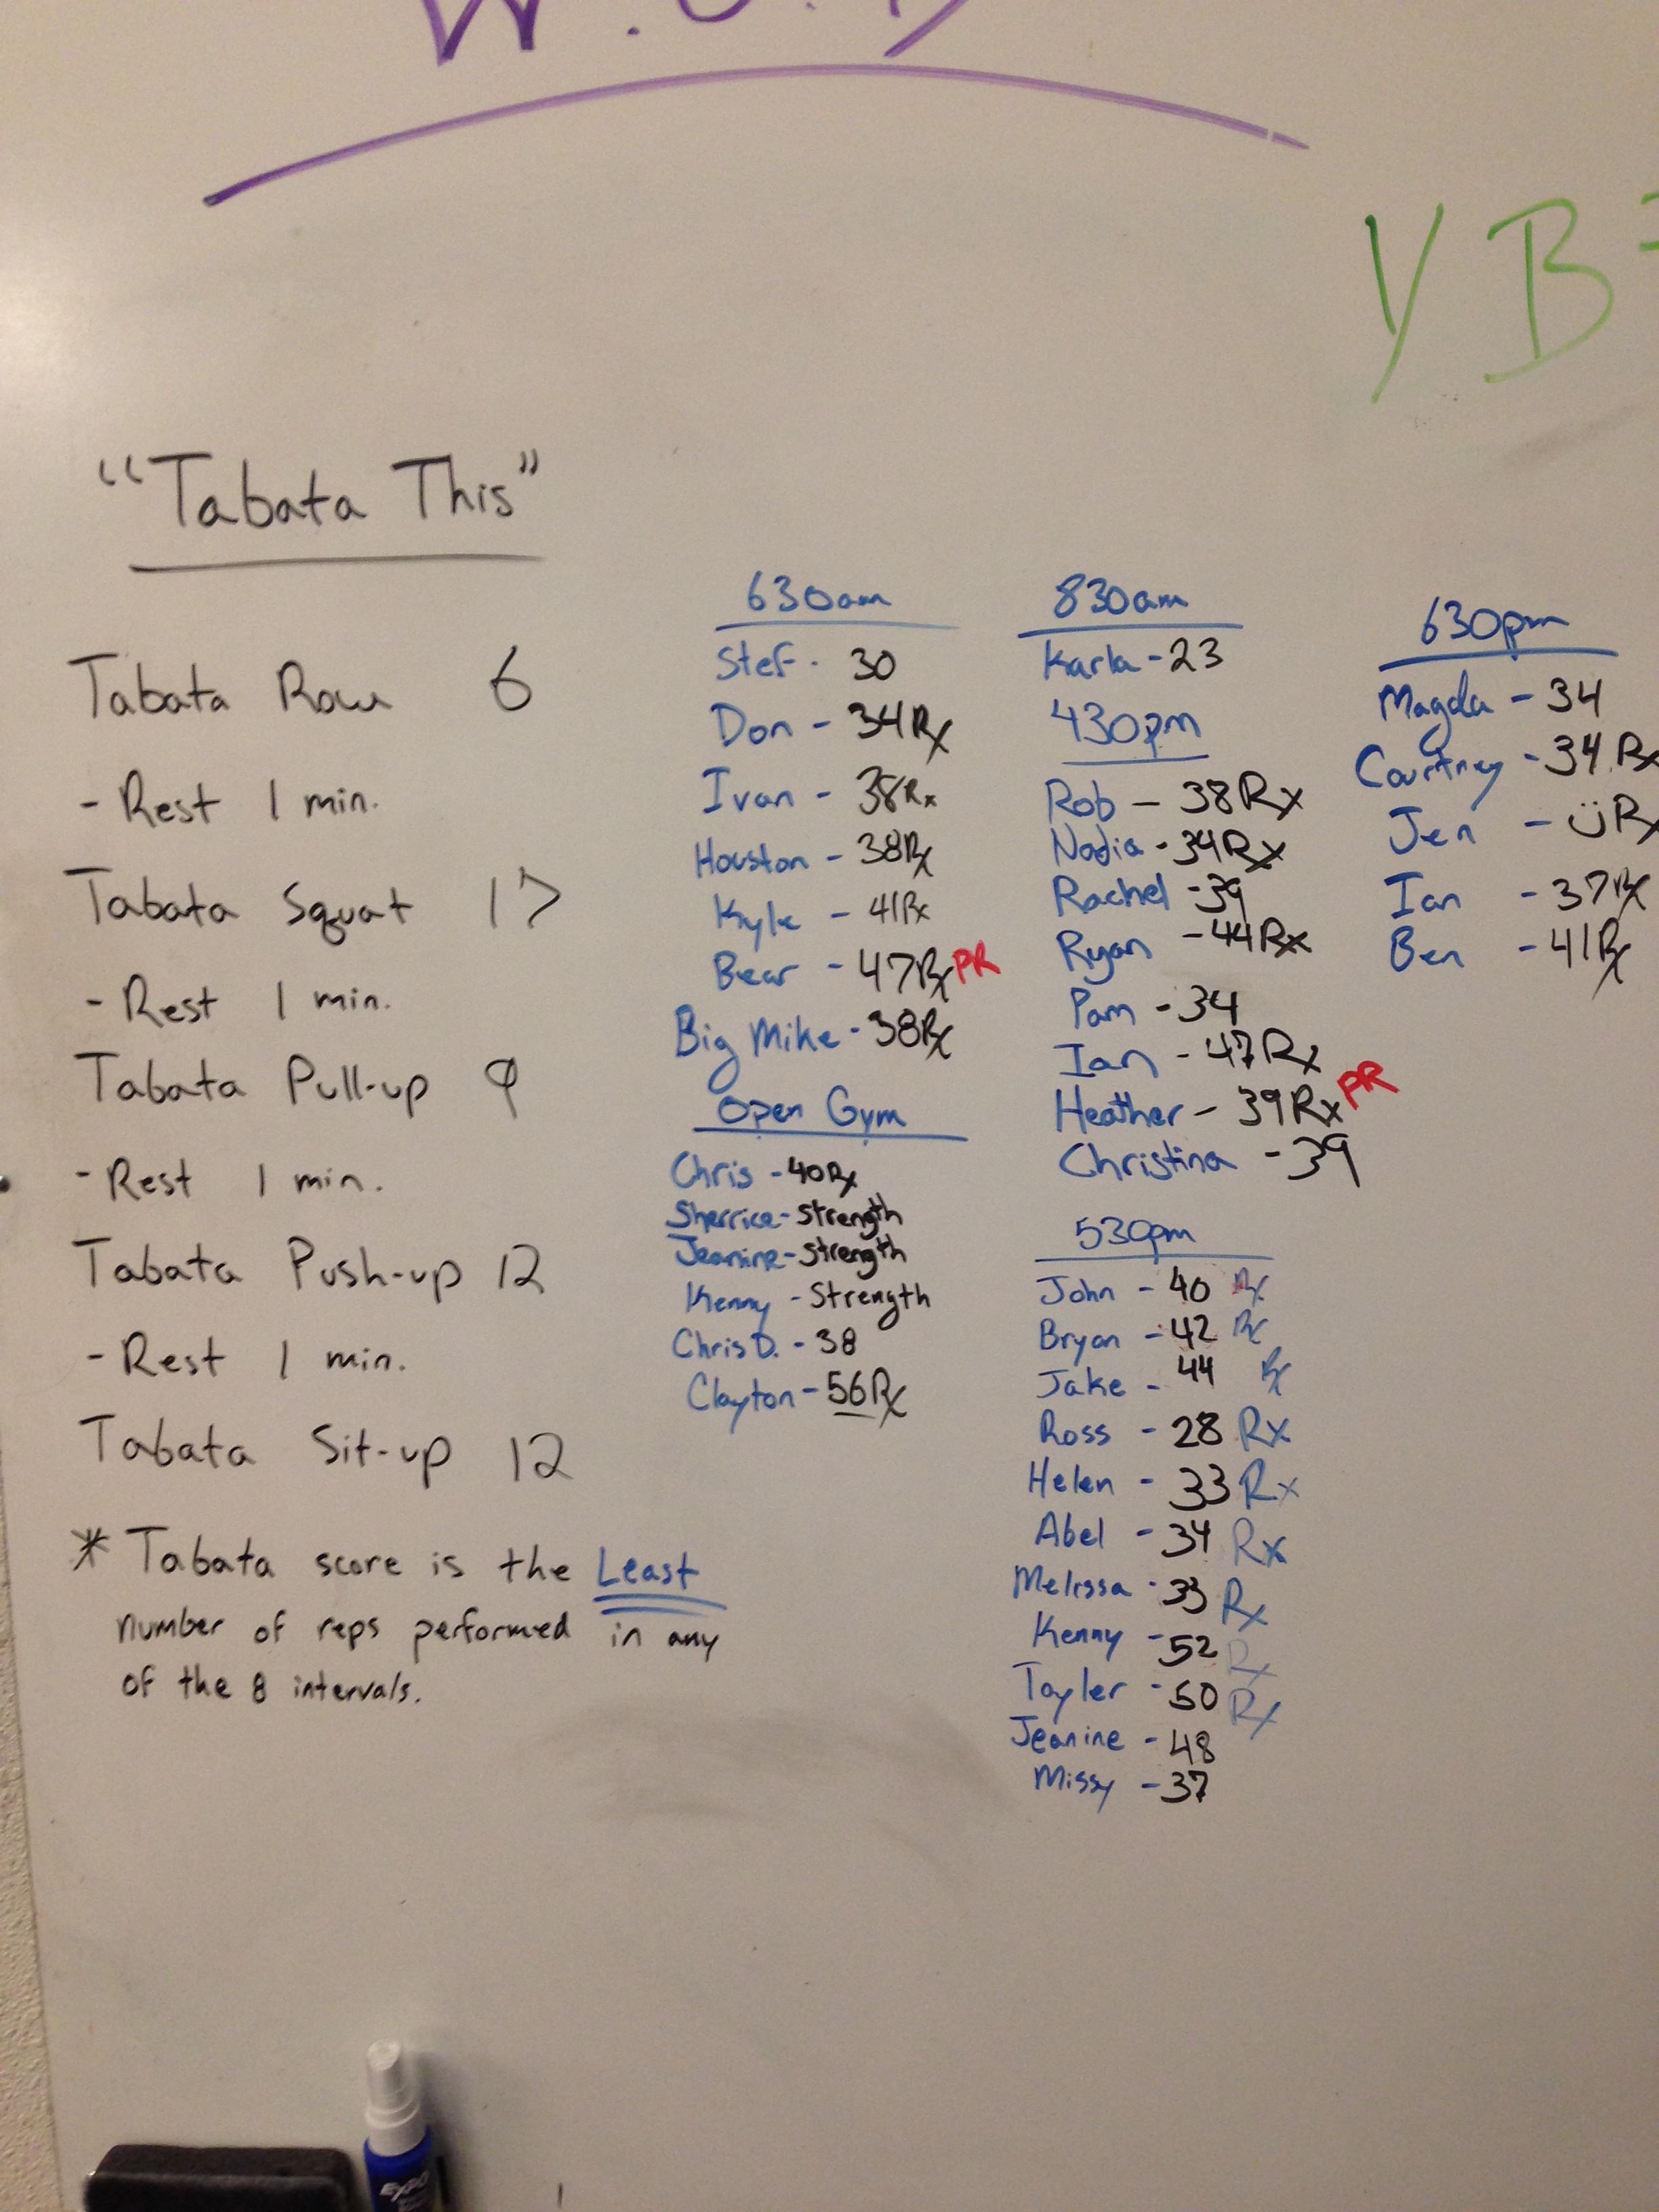 W.O.D
Y B
"Tabata This"
Tabata Row 6
- Rest 1 min.
Tabata Squat 17
- Rest 1 min.
Tabata Pull-up 9
- Rest 1 min.
Tabata Push-up 12
- Rest 1 min.
Tabata Sit-up 12
* Tabata score is the Least
number of reps performed in any
of the 8 intervals.
630am
Stef - 30
Don - 34 Rx
Ivan - 38 Rx
Houston - 38 Rx
Kyle - 41 Rx
Bear - 47 Rx PR
Big Mike - 38 Rx
Open Gym
Chris - 40 Rx
Sherrice - Strength
Jeanine - Strength
Kenny - Strength
Chris D. - 38
Clayton - 56 Rx
830am
Karla - 23
430pm
Rob - 38 Rx
Nadia - 34 Rx
Rachel - 39
Ryan - 44 Rx
Pam - 34
Ian - 47 Rx
Heather - 39 Rx PR
Christina - 39
530pm
John - 40 Rx
Bryan - 42 Rx
Jake - 44 Rx
Ross - 28 Rx
Helen - 33 Rx
Abel - 34 Rx
Melissa - 33 Rx
Kenny - 52 Rx
Tayler - 50 Rx
Jeanine - 48
Missy - 37
630pm
Magda - 34
Courtney - 34 Rx
Jen - Rx
Ian - 37 Rx
Ben - 41 Rx
EXPO